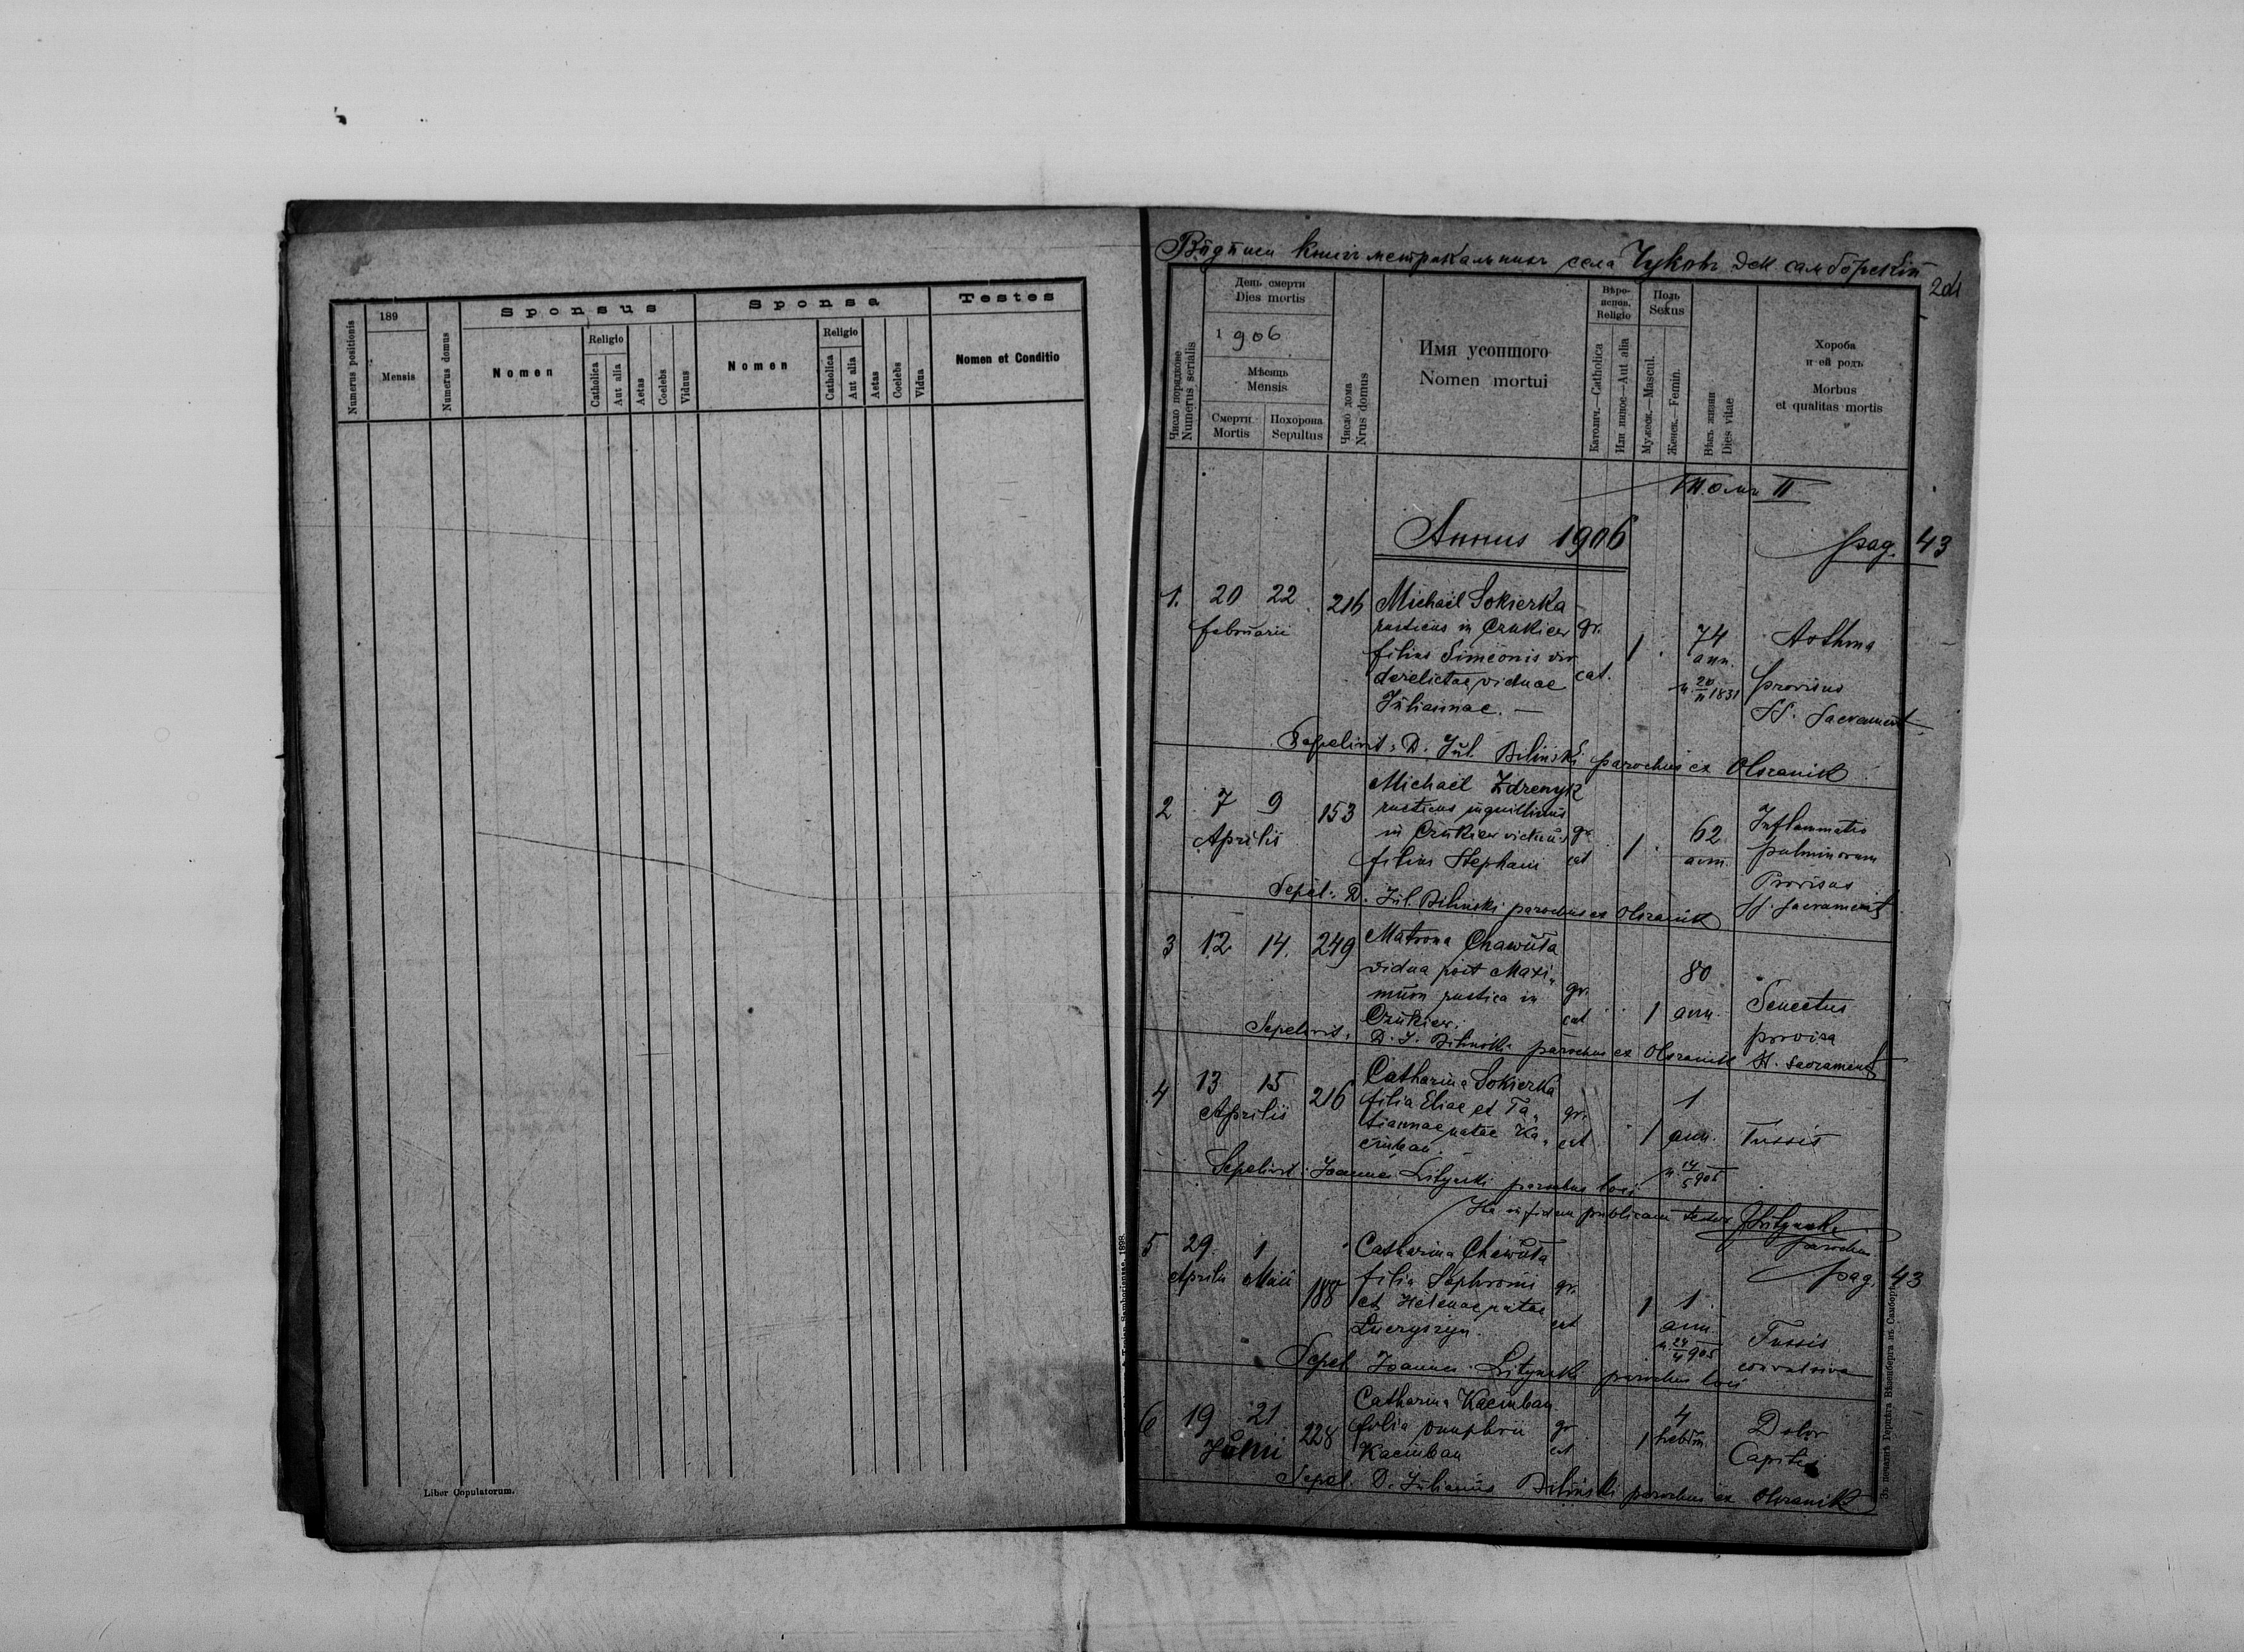 189
Numerus positionis
Mensis
Numerus domus
Sponsus
Nomen
Religio
Catholica
Aut alia
Aetas
Coelebs
Viduus
Sponsa
Nomen
Religio
Catholica
Aut alia
Aetas
Coelebs
Vidua
Testes
Nomen et Conditio
Liber Copulatorum.
села Чуковъ дек. самборскій
201
Число порядкове
Numerus serialis
День смерти
Dies mortis
1906
Мѣсяць
Mensis
Смерти
Mortis
Похорона
Sepultus
Число дома
Nrus domus
Имя усопшого
Nomen mortui
Вѣро-
испов.
Religio
Католич.—Catholica
Или иное—Aut alia
Полъ
Sexus
Мужеск.—Mascul.
Женск.—Femin.
Вѣкъ жизни
Dies vitae
Хороба
и ей родъ
Morbus
et qualitas mortis
Томъ II
Annus 1906
pag. 43
1. 20 22 216 Michael Sokierka
februarii rusticus in Czukiew gr.
filius Simeonis vir 1 74 Asthma
derelictae viduae cat. ann.
Juliannae. — n. 20/II 1831 provisus
SS. Sacrament
Sepelivit: D. Jul. Bilinski parochus ex Olszanik
2 7 9 153 Michael Zdrenyk
Aprilis rusticus inquilinus
in Czukiew viduus gr. 1 62 Inflammatio
filius Stephani cat ann. pulminorum
Provisus
SS. Sacrament
Sepel: D. Jul. Bilinski parochus ex Olszanik
3 12 14. 249 Matrona Chawuta
vidua post Maxi- 80
mum rustica in gr.
Czukiew. cat 1 ann. Senectus
provisa
SS. Sacrament
Sepelivit: D. J. Bilinski parochus ex Olszanik
4 13 15 216 Catharina Sokierka
Aprilii filia Eliae et Ta- gr. 1
tiannae natae Ka- cat 1 ann. Tussis
cziuban. n. 14/5 905
Sepelivit: Joannes Litynski parochus loci
Ita in fidem publicam testor JLitynski
parochus
pag. 43
5 29 1 Catharina Chawuta
Aprilis Maii 188 filia Sophronii gr.
et Helenae natae cat 1 1
ann. Tussis
n. 24/4 905 convulsiva
Sepel Joannes Litynski parochus loci
6 19 21 228 Catharina Kaciuban
Julii filia Onuphrii gr 1 4 Dolor
Kaciuban cat hebdm. Capitis
Sepel. D. Julianus Bilinski parochus ex Olszanik
Зъ печатнѣ Генриха Візенберга въ Самборѣ.